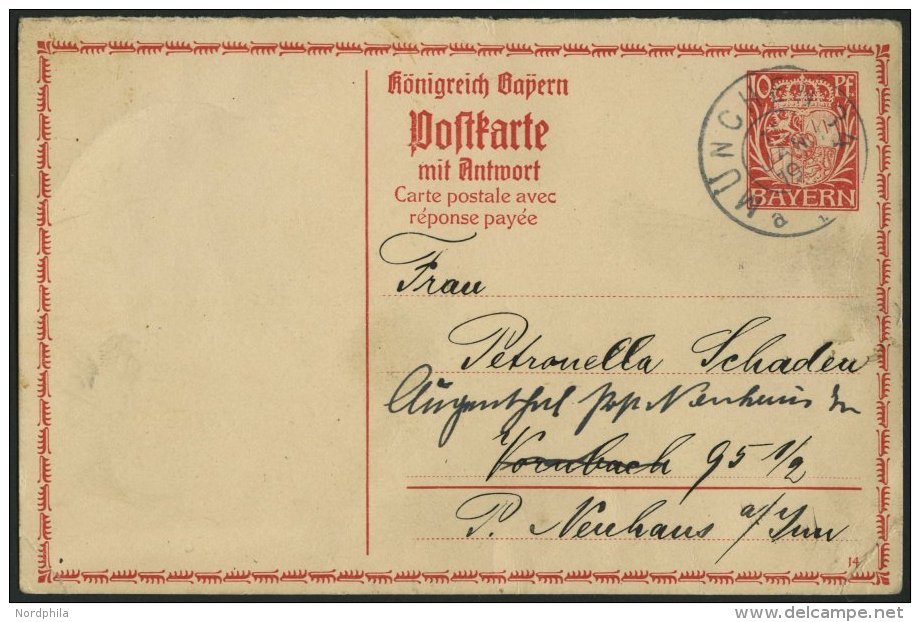 10 Pf
BAYERN
MÜNCHEN
a
Königreich Bayern
Postkarte
mit Antwort
Carte postale avec
réponse payée
Frau
Petronella Schaden
Neuhaus
Vornbach 95 1/2
P. Neuhaus a/Inn
14
Nordphila
delcampe.net